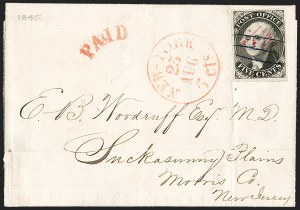 1845.
PAID
NEW-YORK
5 cts
25
AUG
POST OFFICE
FIVE CENTS
E. B. Woodruff Esq M.D.
Suckasunny Plains
Morris Co.
New Jersey